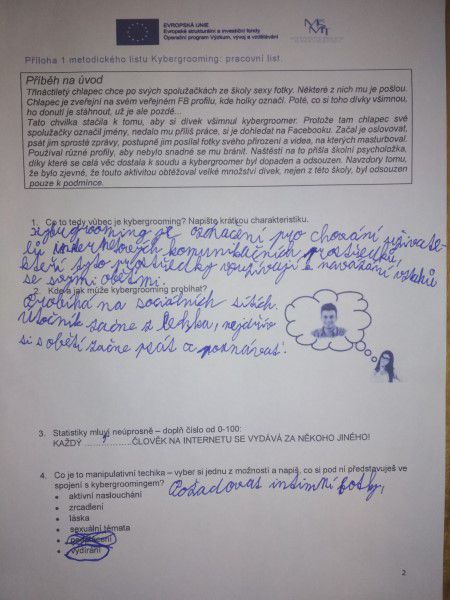 EVROPSKÁ UNIE
Evropské strukturální a investiční fondy
Operační program Výzkum, vývoj a vzdělávání
Příloha 1 metodického listu Kybergrooming: pracovní list.
Příběh na úvod
Třináctiletý chlapec chce po svých spolužačkách ze školy sexy fotky. Některé z nich mu je pošlou.
Chlapec je zveřejní na svém veřejném FB profilu, kde holky označí. Poté, co si toho dívky všimnou,
ho donutí je stáhnout, už je ale pozdě...
Tato chvilka stačila k tomu, aby si dívek všimnul kybergroomer. Protože tam chlapec své
spolužačky označil jmény, nedalo mu příliš práce, si je dohledat na Facebooku. Začal je oslovovat,
psát jim sprosté zprávy, postupně jim posílal fotky svého přirození a videa, na kterých masturboval.
Používal různé profily, aby nebylo snadné se mu bránit. Naštěstí na to přišla školní psycholožka,
díky které se celá věc dostala k soudu a kybergroomer byl dopaden a odsouzen. Navzdory tomu,
že bylo zjevné, že touto aktivitou obtěžoval velké množství dívek, nejen z této školy, byl odsouzen
pouze k podmínce.
1. Co to tedy vůbec je kybergrooming? Napište krátkou charakteristiku.
Kybergrooming je označení pro chování uživate-
lů internetových komunikačních prostředků,
kteří tyto prostředky využívají navázání vztahů
se svými oběťmi.
2. Kde a jak může kybergrooming probíhat?
Probíhá na sociálních sítích.
Útočník začne z lehka, nejdřív
si s obětí začne psát a poznávat.
3. Statistiky mluví neúprosně – doplň číslo od 0-100:
KAŽDÝ ………………ČLOVĚK NA INTERNETU SE VYDÁVÁ ZA NĚKOHO JINÉHO!
4. Co je to manipulativní techika – vyber si jednu z možností a napiš, co si pod ní představuješ ve
spojení s kybergroomingem? Požadovat intimní fotky,
• aktivní naslouchání
• zrcadlení
• láska
• sexuální témata
• vydírání
2